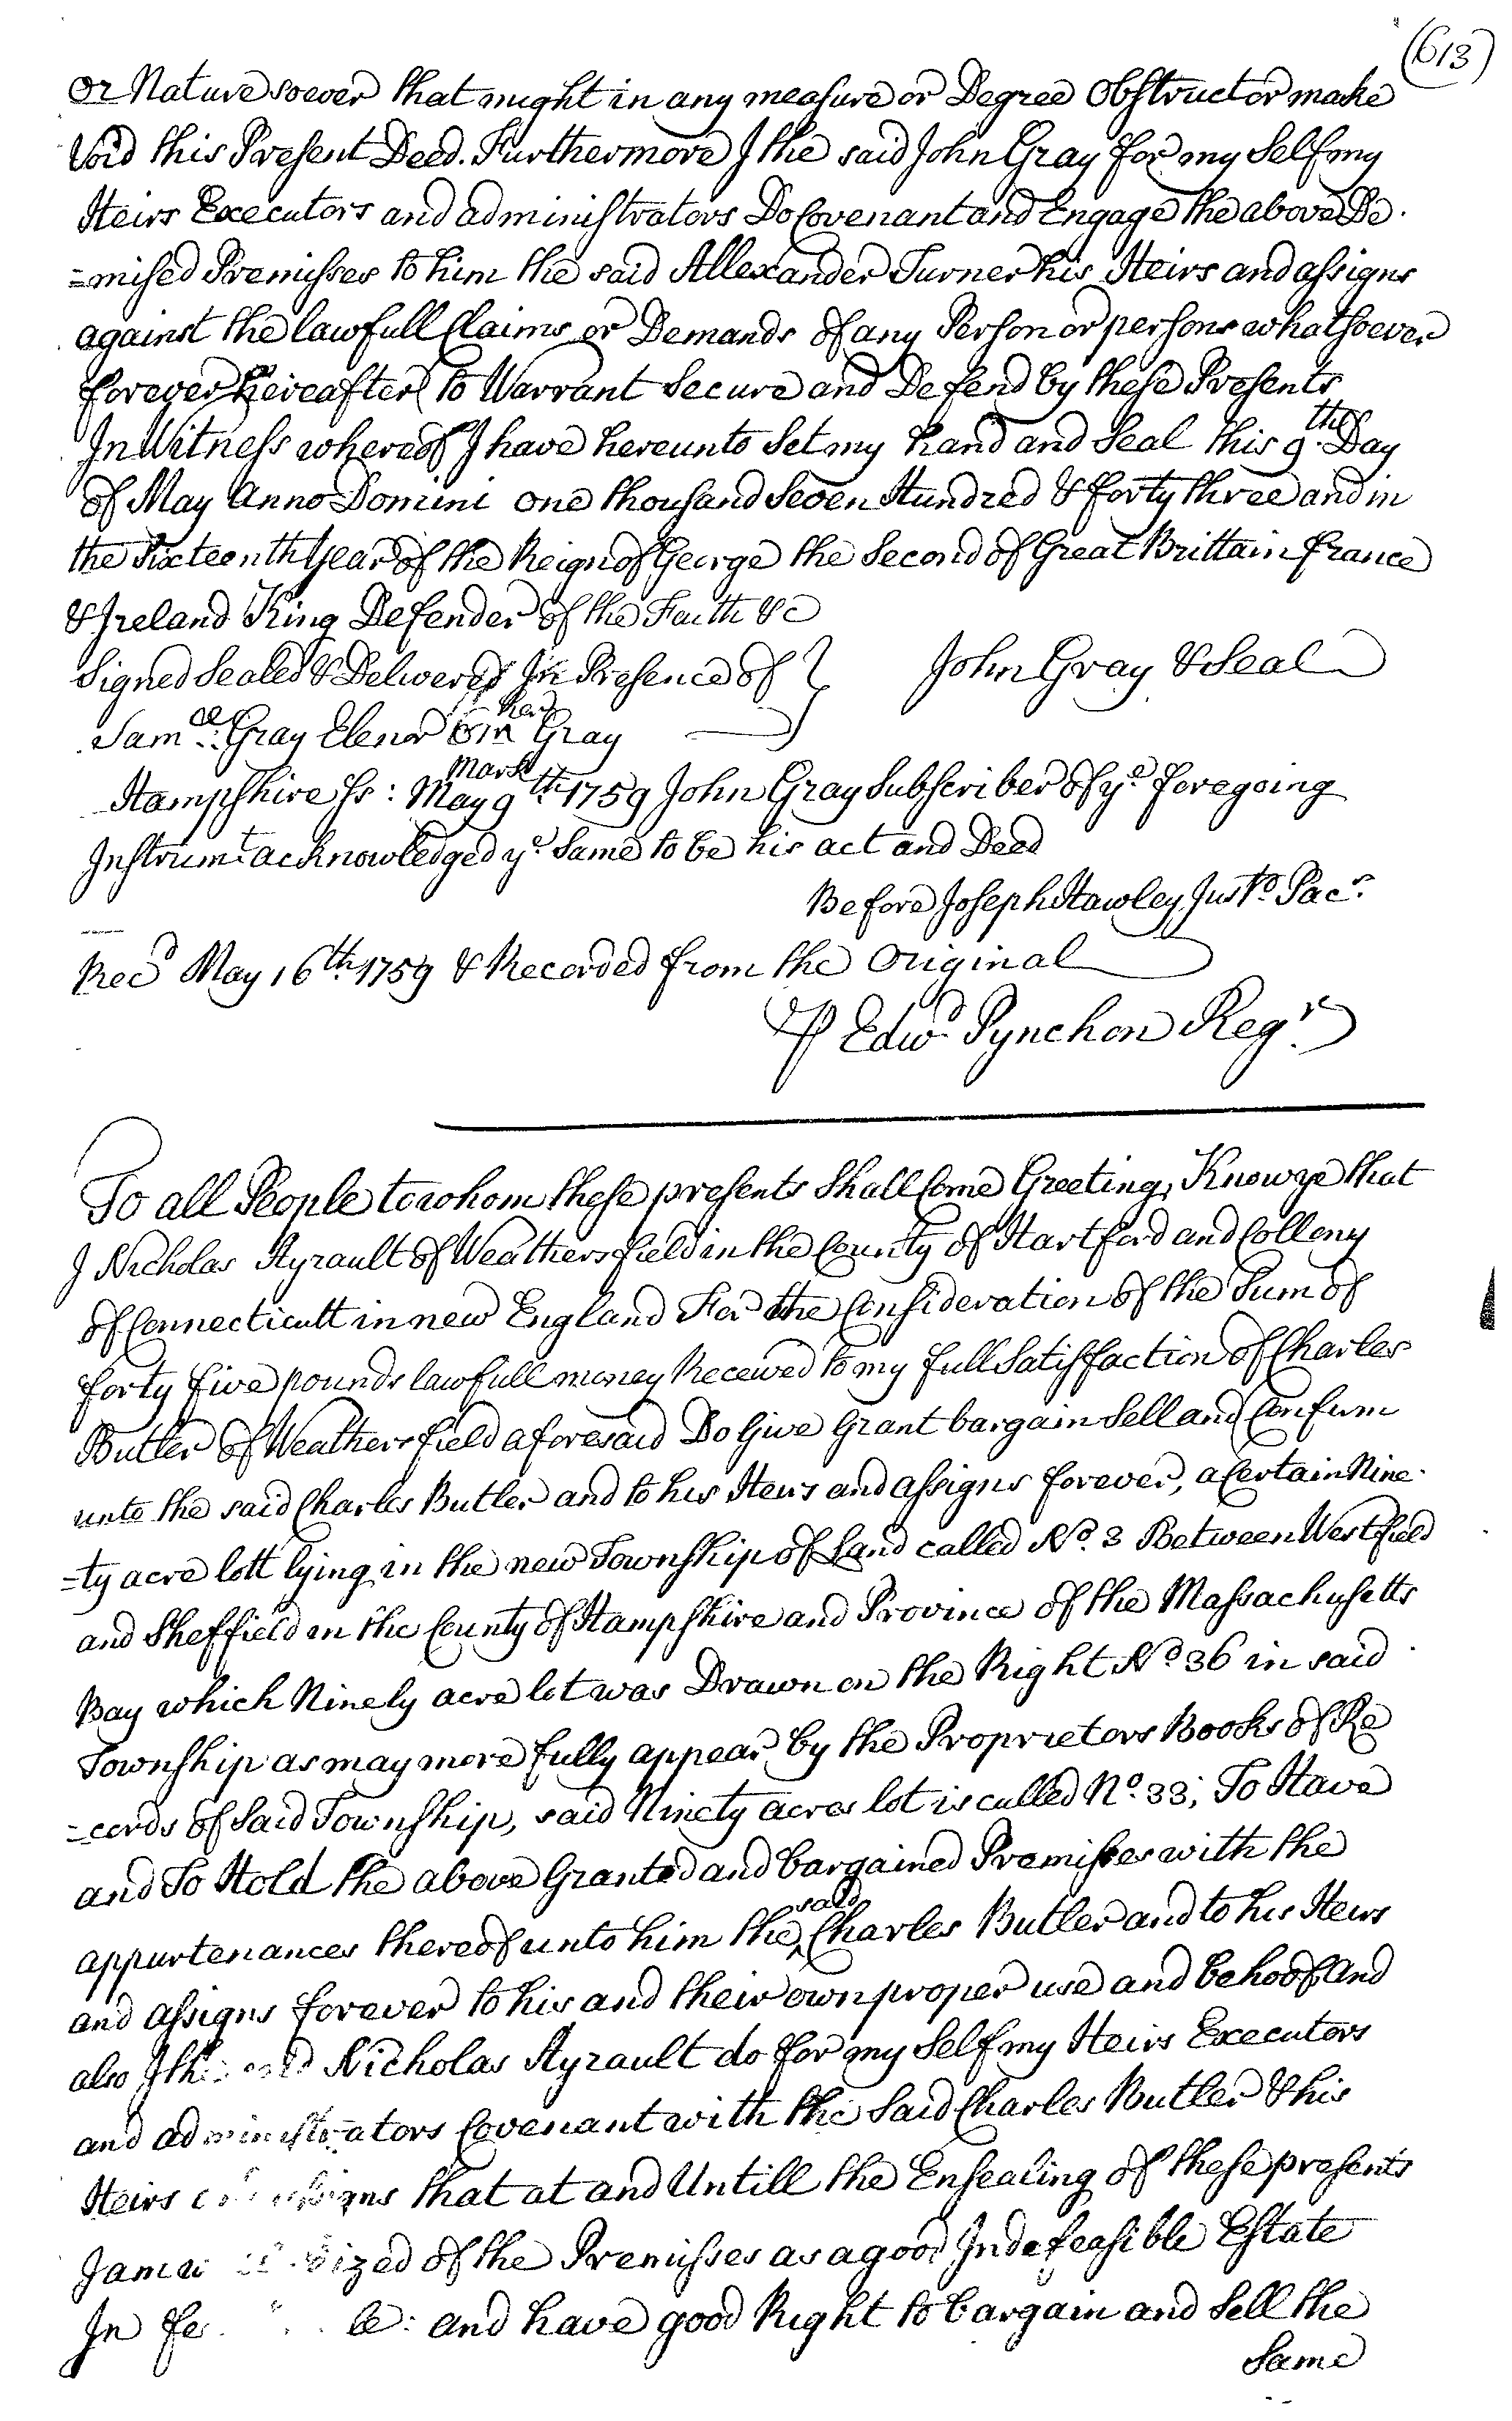 (613)
or Nature soever that might in any measure or Degree Obstruct or make
Void this Present Deed. Furthermore I the said John Gray for my Self my
Heirs Executors and administrators Do Covenant and Engage the above De
=mised Premisses to him the said Allexander Turner his Heirs and assigns
against the lawfull Claims or Demands of any Person or persons whatsoever
forever hereafter to Warrant Secure and Defend by these Presents
In Witness whereof I have hereunto Set my hand and Seal this 9th Day
of May Anno Domini one thousand Seven Hundred & forty three and in
the Sixteenth Year of the Reign of George the Second of Great Brittain france
& Ireland King Defender of the Faith &c
Signed Sealed & Delivered In Presence of } John Gray & Seal
Samel Gray Elenor her Gray
mark
Hampshire Ss: May 9th 1759 John Gray Subscriber of ye foregoing
Instrumt acknowledged ye Same to be his act and Deed
Before Joseph Hawley Justo Pacs
Recd May 16th 1759 & Recorded from the Original
P Edwd Pynchon Regr
To all People to whom these presents Shall Come Greeting, Know ye that
I Nicholas Ayrault of Weathersfield in the County of Hartford and Collony
of Connecticutt in new England For the Consideration of the Sum of
forty five pounds lawfull money Received to my full Satisfaction of Charles
Butler of Weathersfield aforesaid Do Give Grant bargain Sell and Confirm
unto the said Charles Butler and to his Heirs and assigns forever, a Certain Nine
=ty acre lott lying in the new Township of Land called No. 3 Between Westfield
and Sheffield in the County of Hampshire and Province of the Massachusetts
Bay which Ninely acre lot was Drawn on the Right No 36 in said
Township as may more fully appear by the Proprietors Books of Re
=cords of Said Township, said Ninety acres lot is called No. 33; To Have
and To Hold the above Granted and bargained Premisses with the
appurtenances thereof unto him the said Charles Butler and to his Heirs
and assigns forever to his and their own proper use and behoof And
also I the said Nicholas Ayrault do for my Self my Heirs Executors
and administrators Covenant with the Said Charles Butler & his
Heirs assigns that at and Untill the Ensealing of these presents
I am of the Premisses as a good Indefeasible Estate
In and have good Right to bargain and Sell the
Same